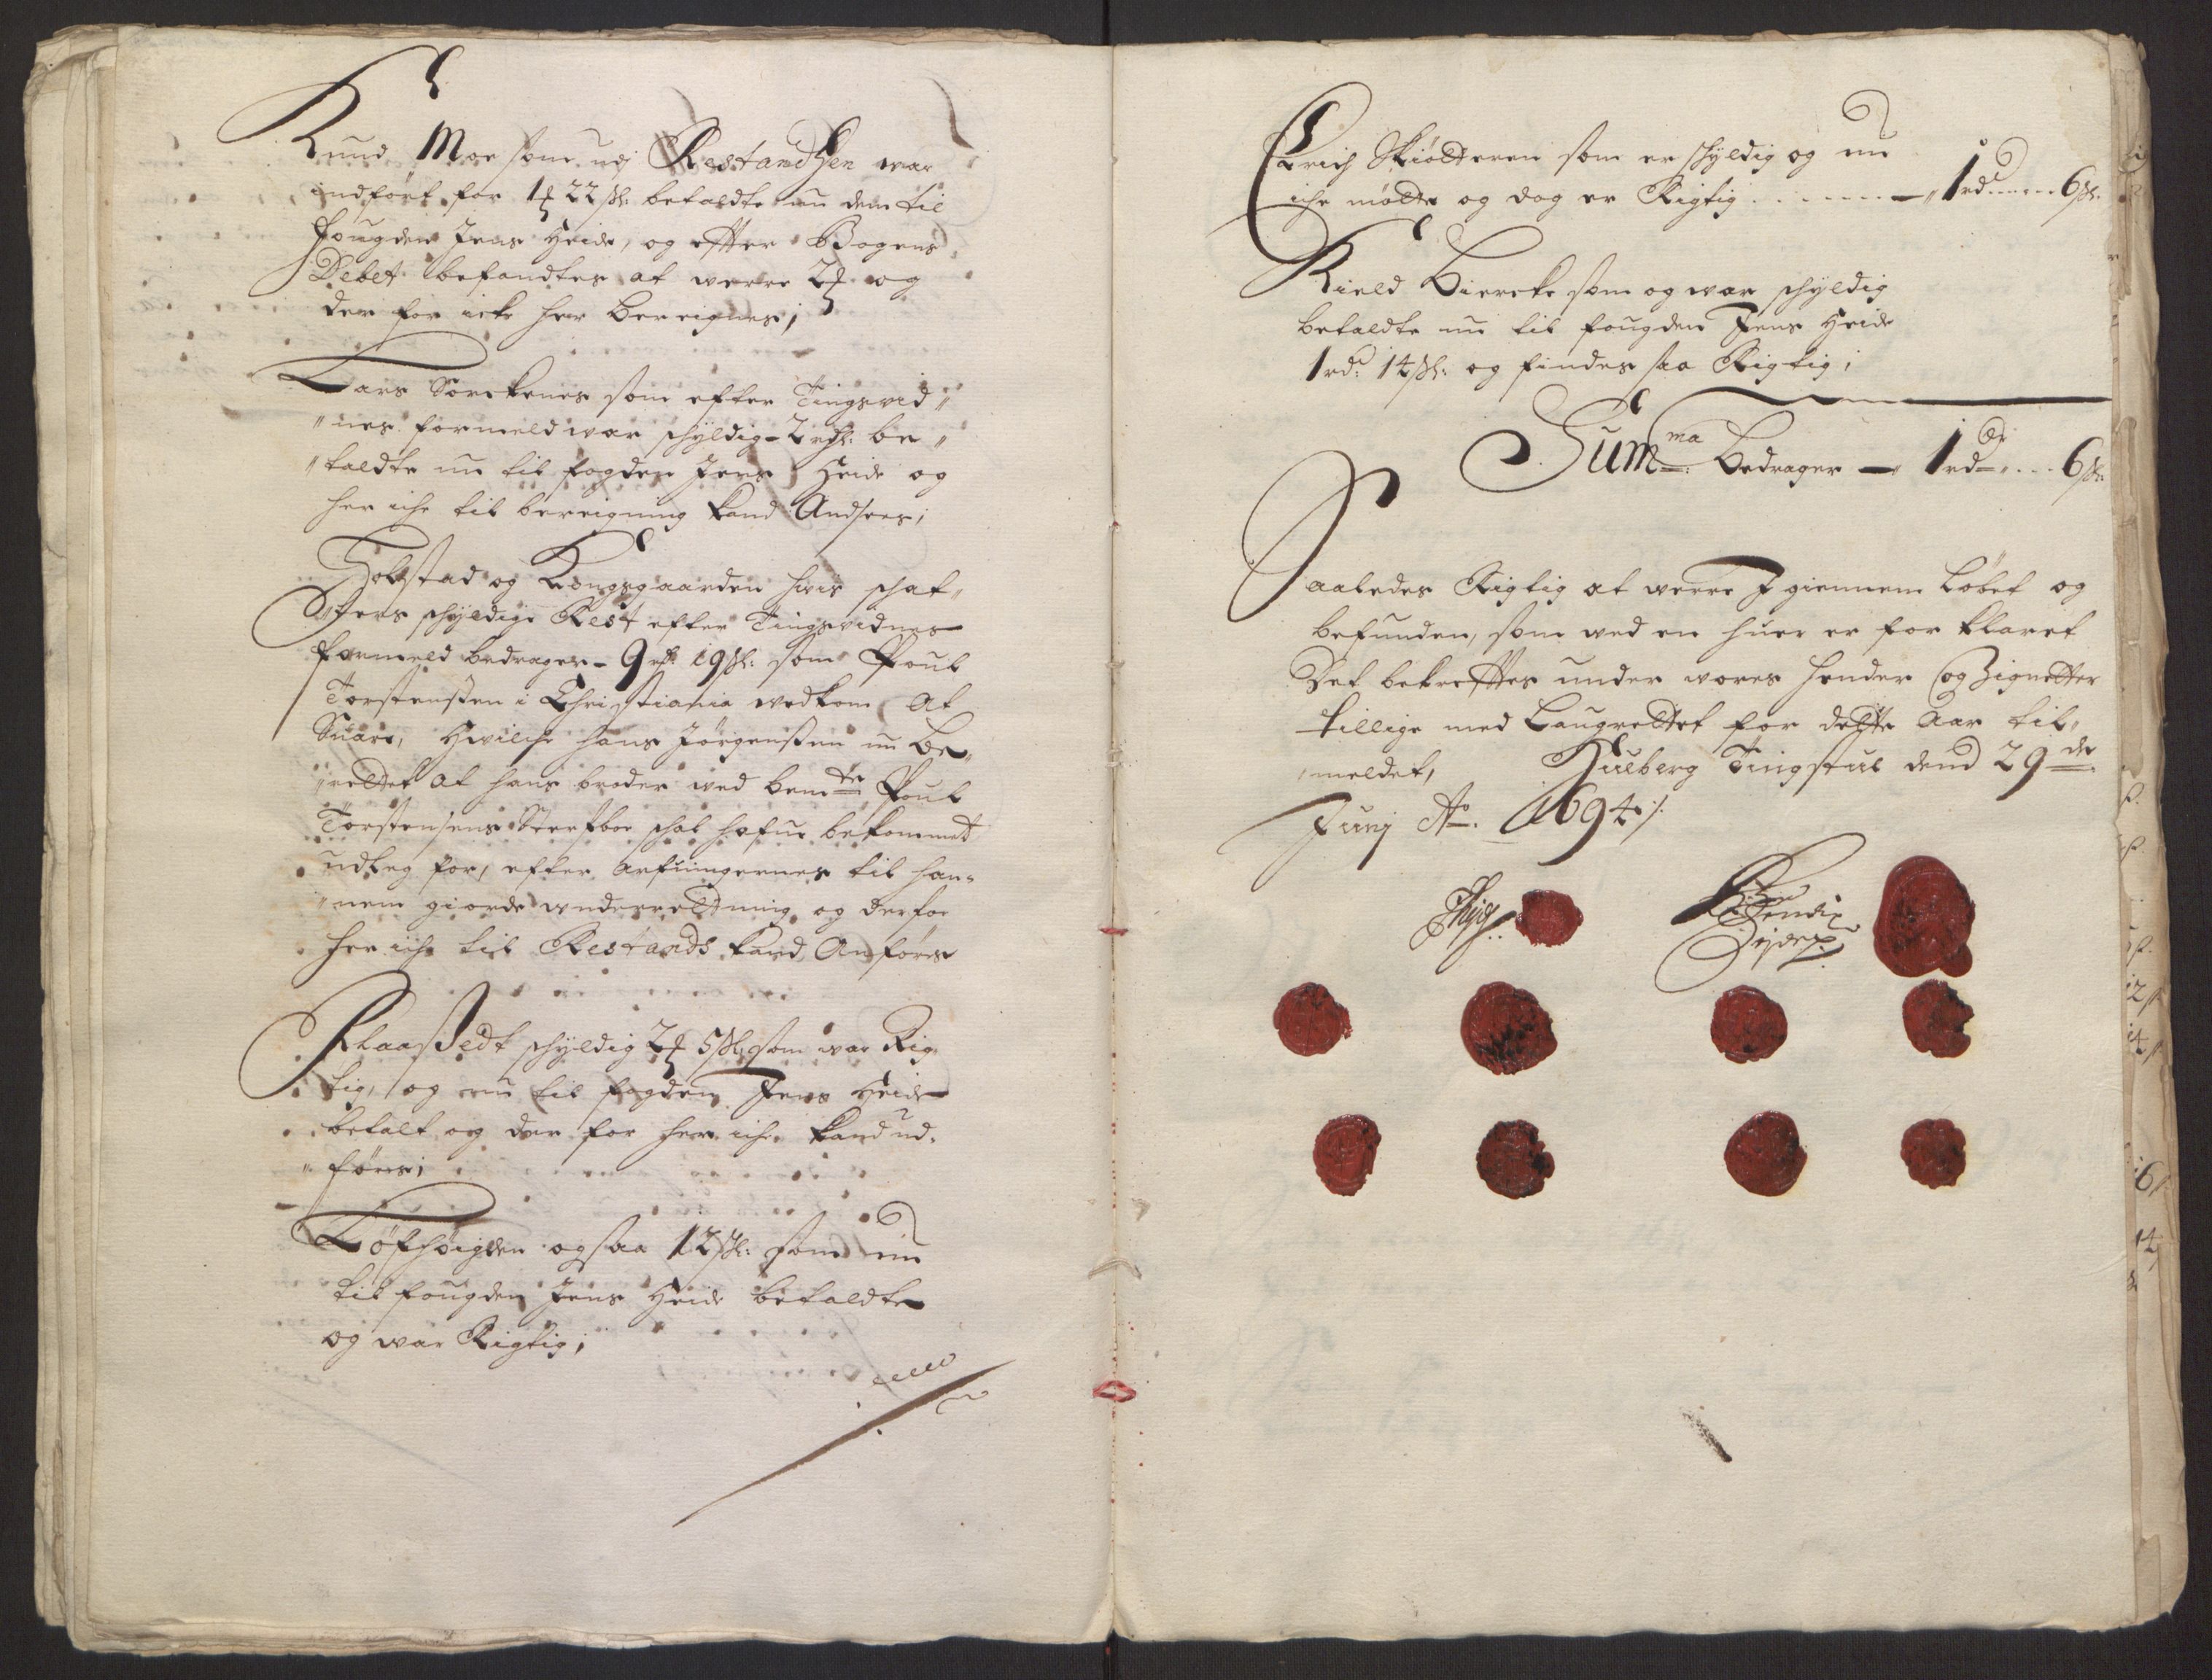 Knud Moe som udj Restandsen war
indført for 1 22 ß: betaldte nu dem til
fougden Jens Heide, og efter Bogens
Debet befandtes at werre 2 og
der for icke her bereignes;
Lars Sorckenes som efter Tingsvid„
„nes formeld war schyldig - 2 rdr: be„
„taldte nu til fogden Jens Heide og
her iche til bereigning kand Ansees;
Holstad og Kongsgaarden hvis schat„
ters schyldige Rest efter Tingsvidnes
formeld bedrager - 9 rdr 19 ß: som Poul
Torstensen i Christiania wedkom At
Suare, Hwilche Hans Jørgensen nu be„
„rettet at hans broder wed bemte Poul
Torstensens Sterfboe schal hafue bekommet
udleg for, efter Arfuingernes til han„
„nem giorde wnderretning og derfor
her iche til Restands kand Anføres
Klaastedt schyldig 2 5 ß, som war Rig
tig, og nu til fogden Jens Heide
betalt og der for her iche kand ud„
„føres;
Løfhøigden ogsaa 12 ß: som nu
til fougden Jens Heide betaldte
og war Rigtig;
Erich Skiølteren som er schyldig og nu
iche møtte og dog er Rigtig - 1 rd 6 ß.
Kield Biercke som og war schyldig
betaldte nu til fougden Jens Heide
1 rd: 14 ß: og findes saa Rigtig;
Summa Bedrager - 1 rdr 6 ß
Saaledes Rigtig at werre Igiennem Løbet og
befunden, som wed en huer er for klaret
Det bekreftes under wores hender og Zignetter
tillige med Laugrettet for dette Aar til„
„meldet, Hulberg Tingstul dend 29de
Junj Ao. 1694 ./.